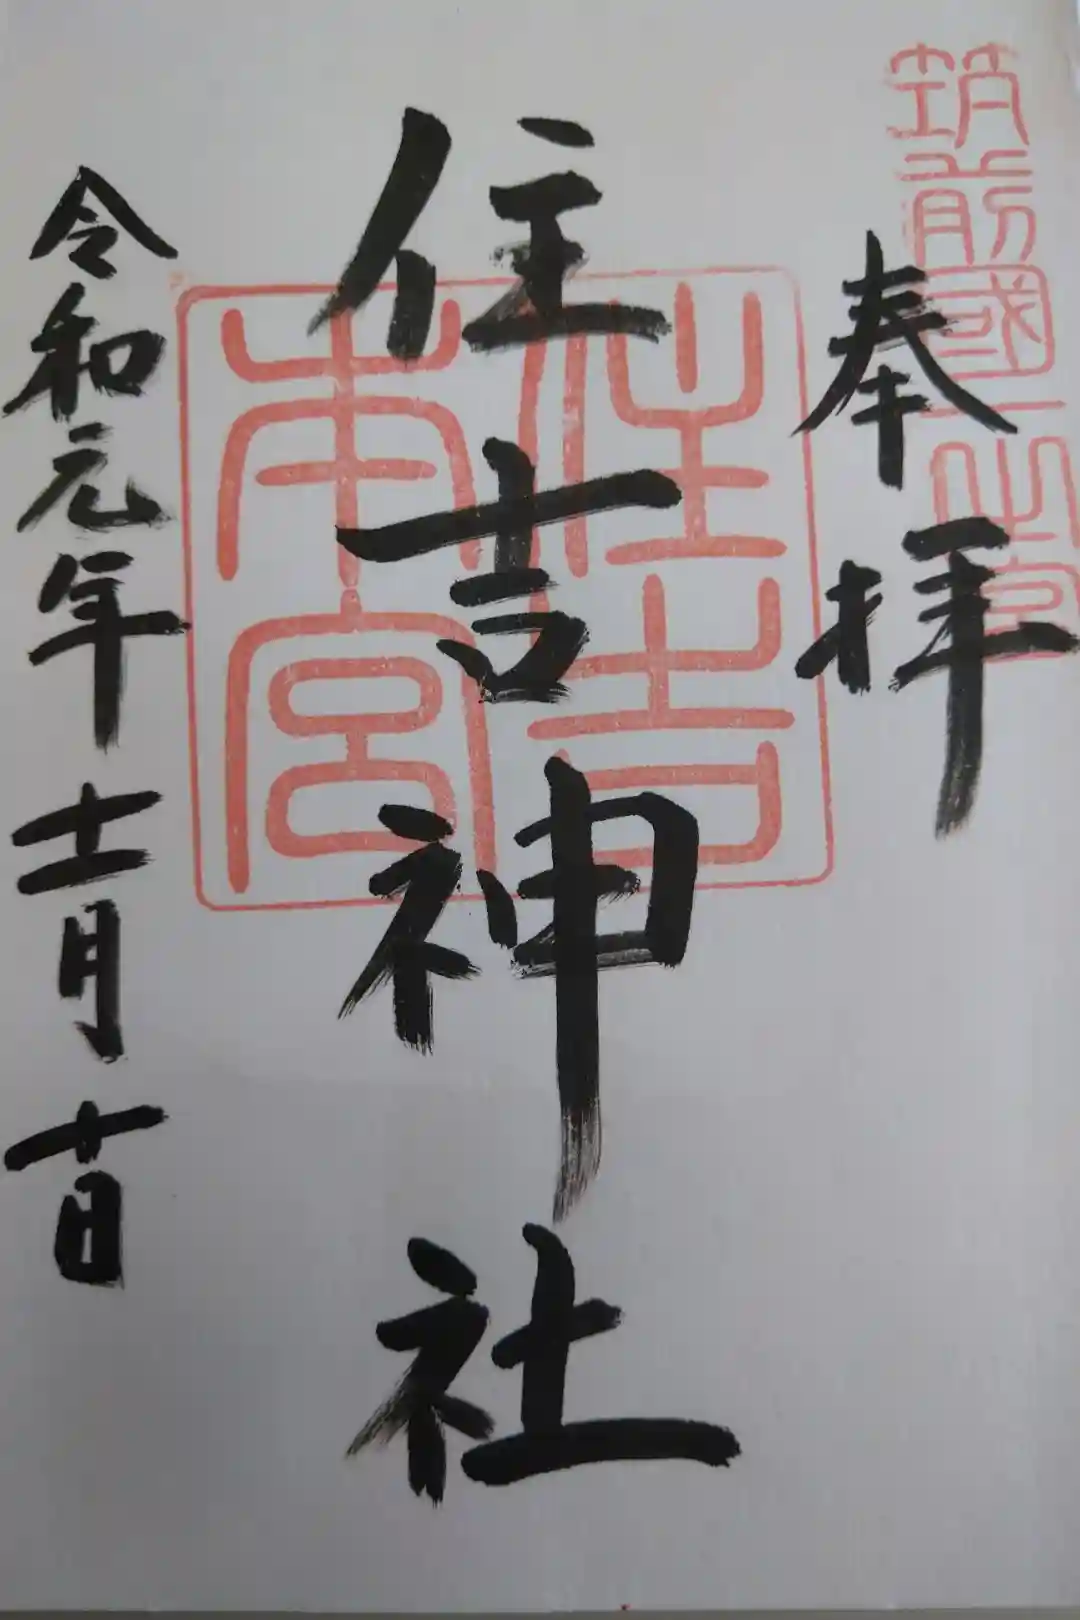 筑前國一之宮
奉拝
住吉神社
住吉
本宮
令和元年十二月十日